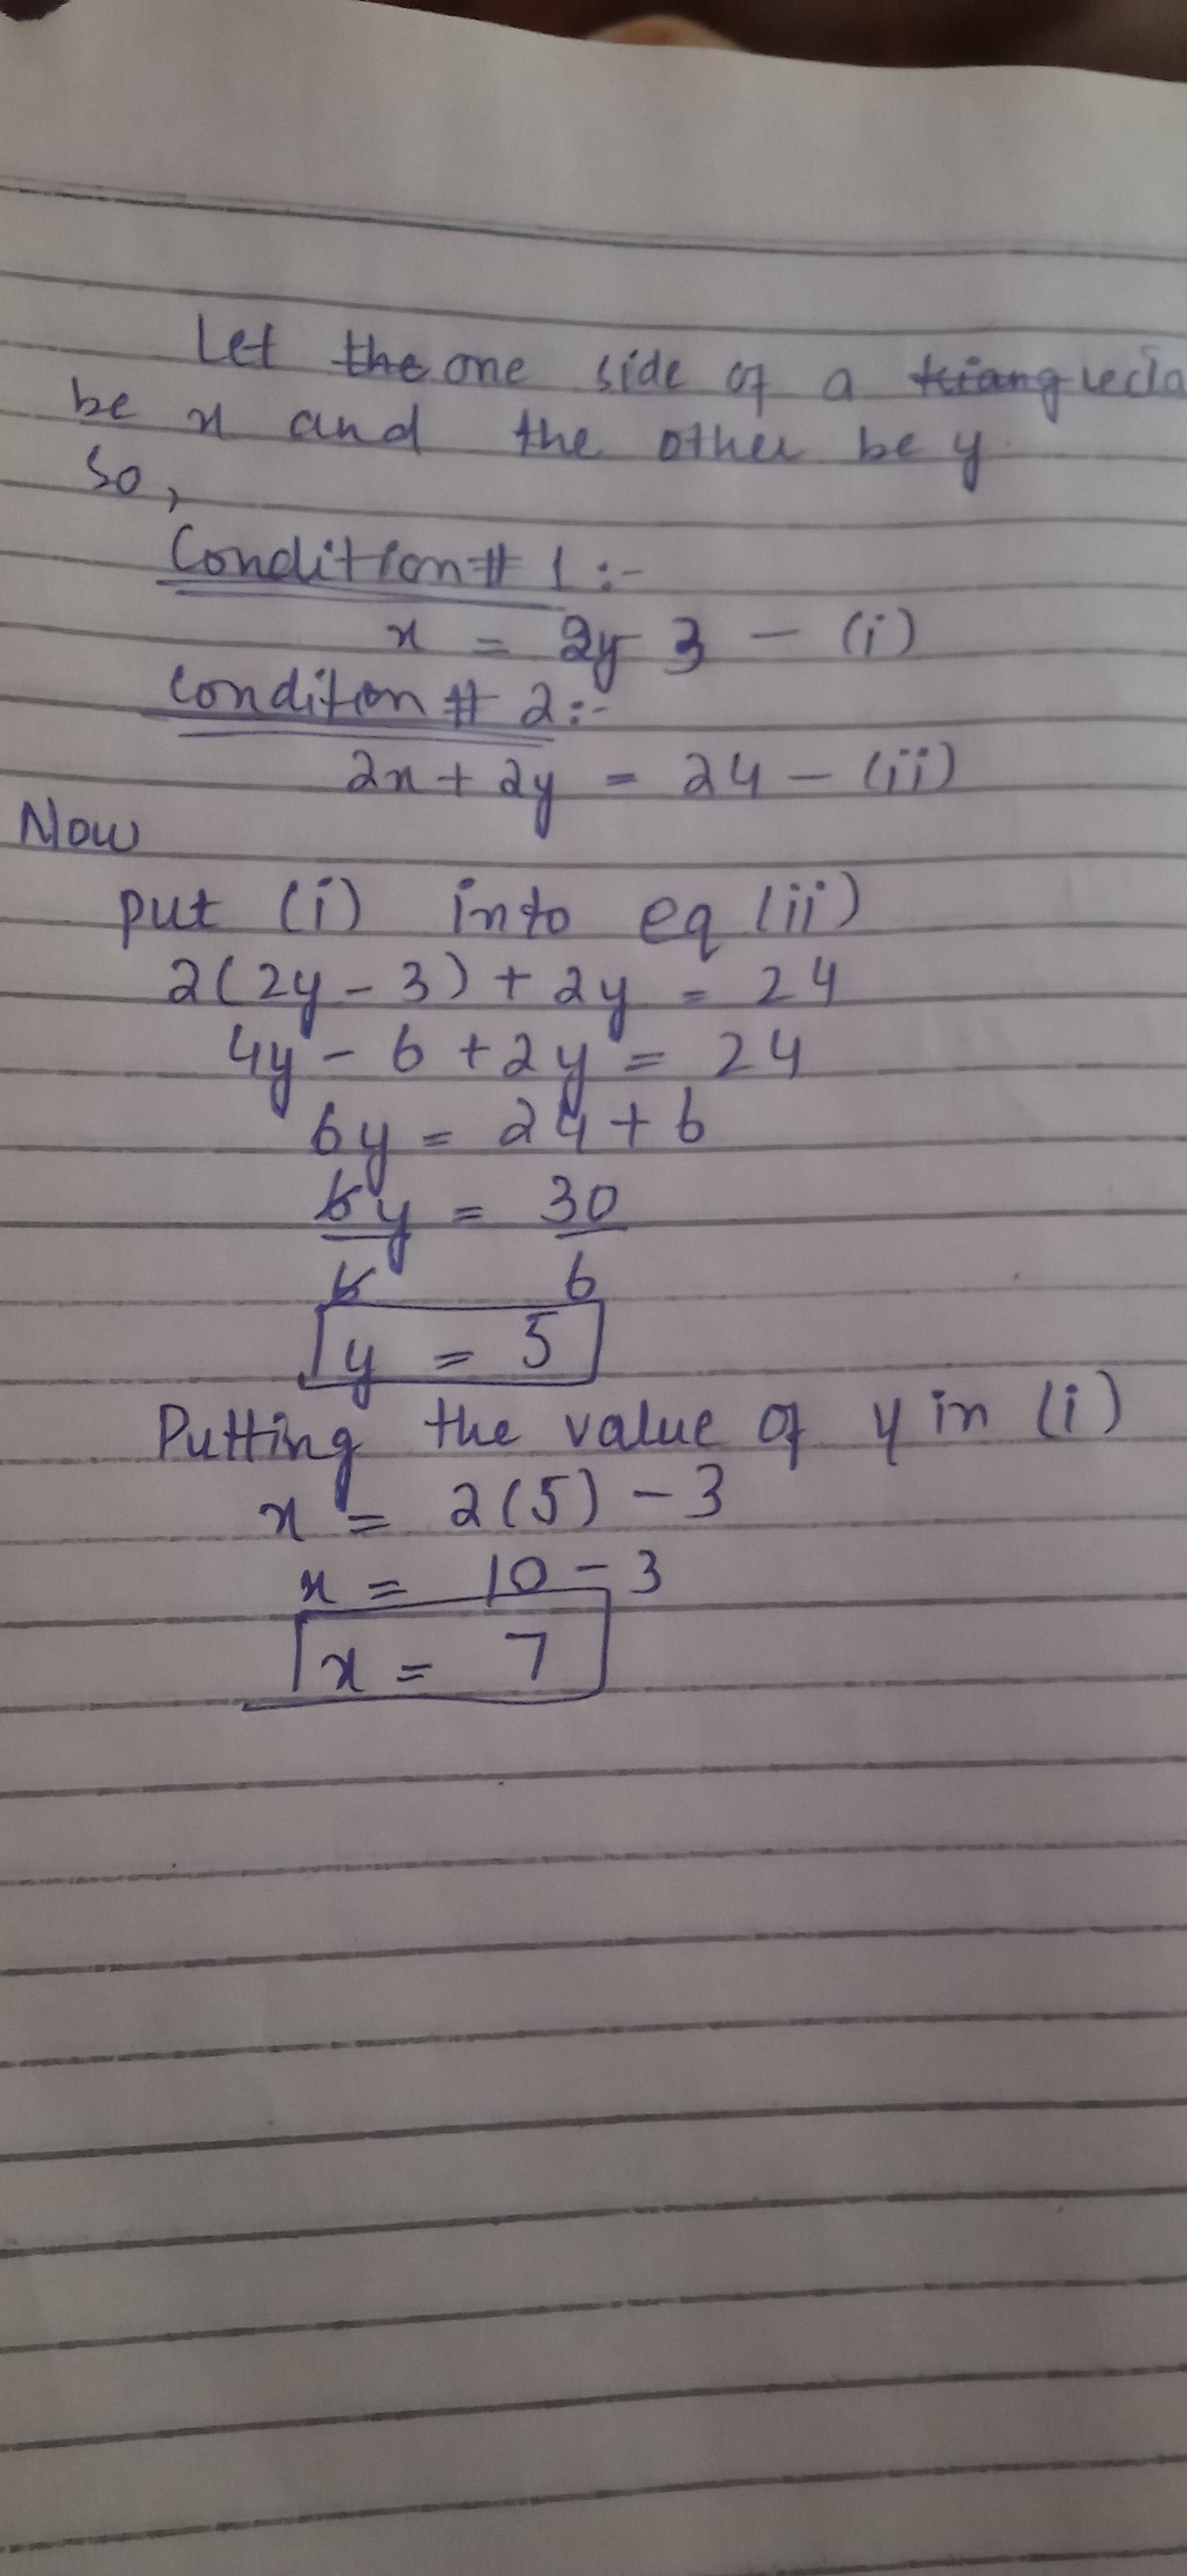 Let the one side of a triang recta
be x and the other be y
So,
Condition # 1 :-
x = 2y 3 - (i)
Condition # 2 :-
2x + 2y = 24 - (ii)
Now
put (i) into eq (ii)
2(2y - 3) + 2y = 24
4y - 6 + 2y = 24
6y = 24 + 6
6y = 30
6 6
y = 5
Putting the value of y in (i)
x = 2(5) - 3
x = 10 - 3
x = 7